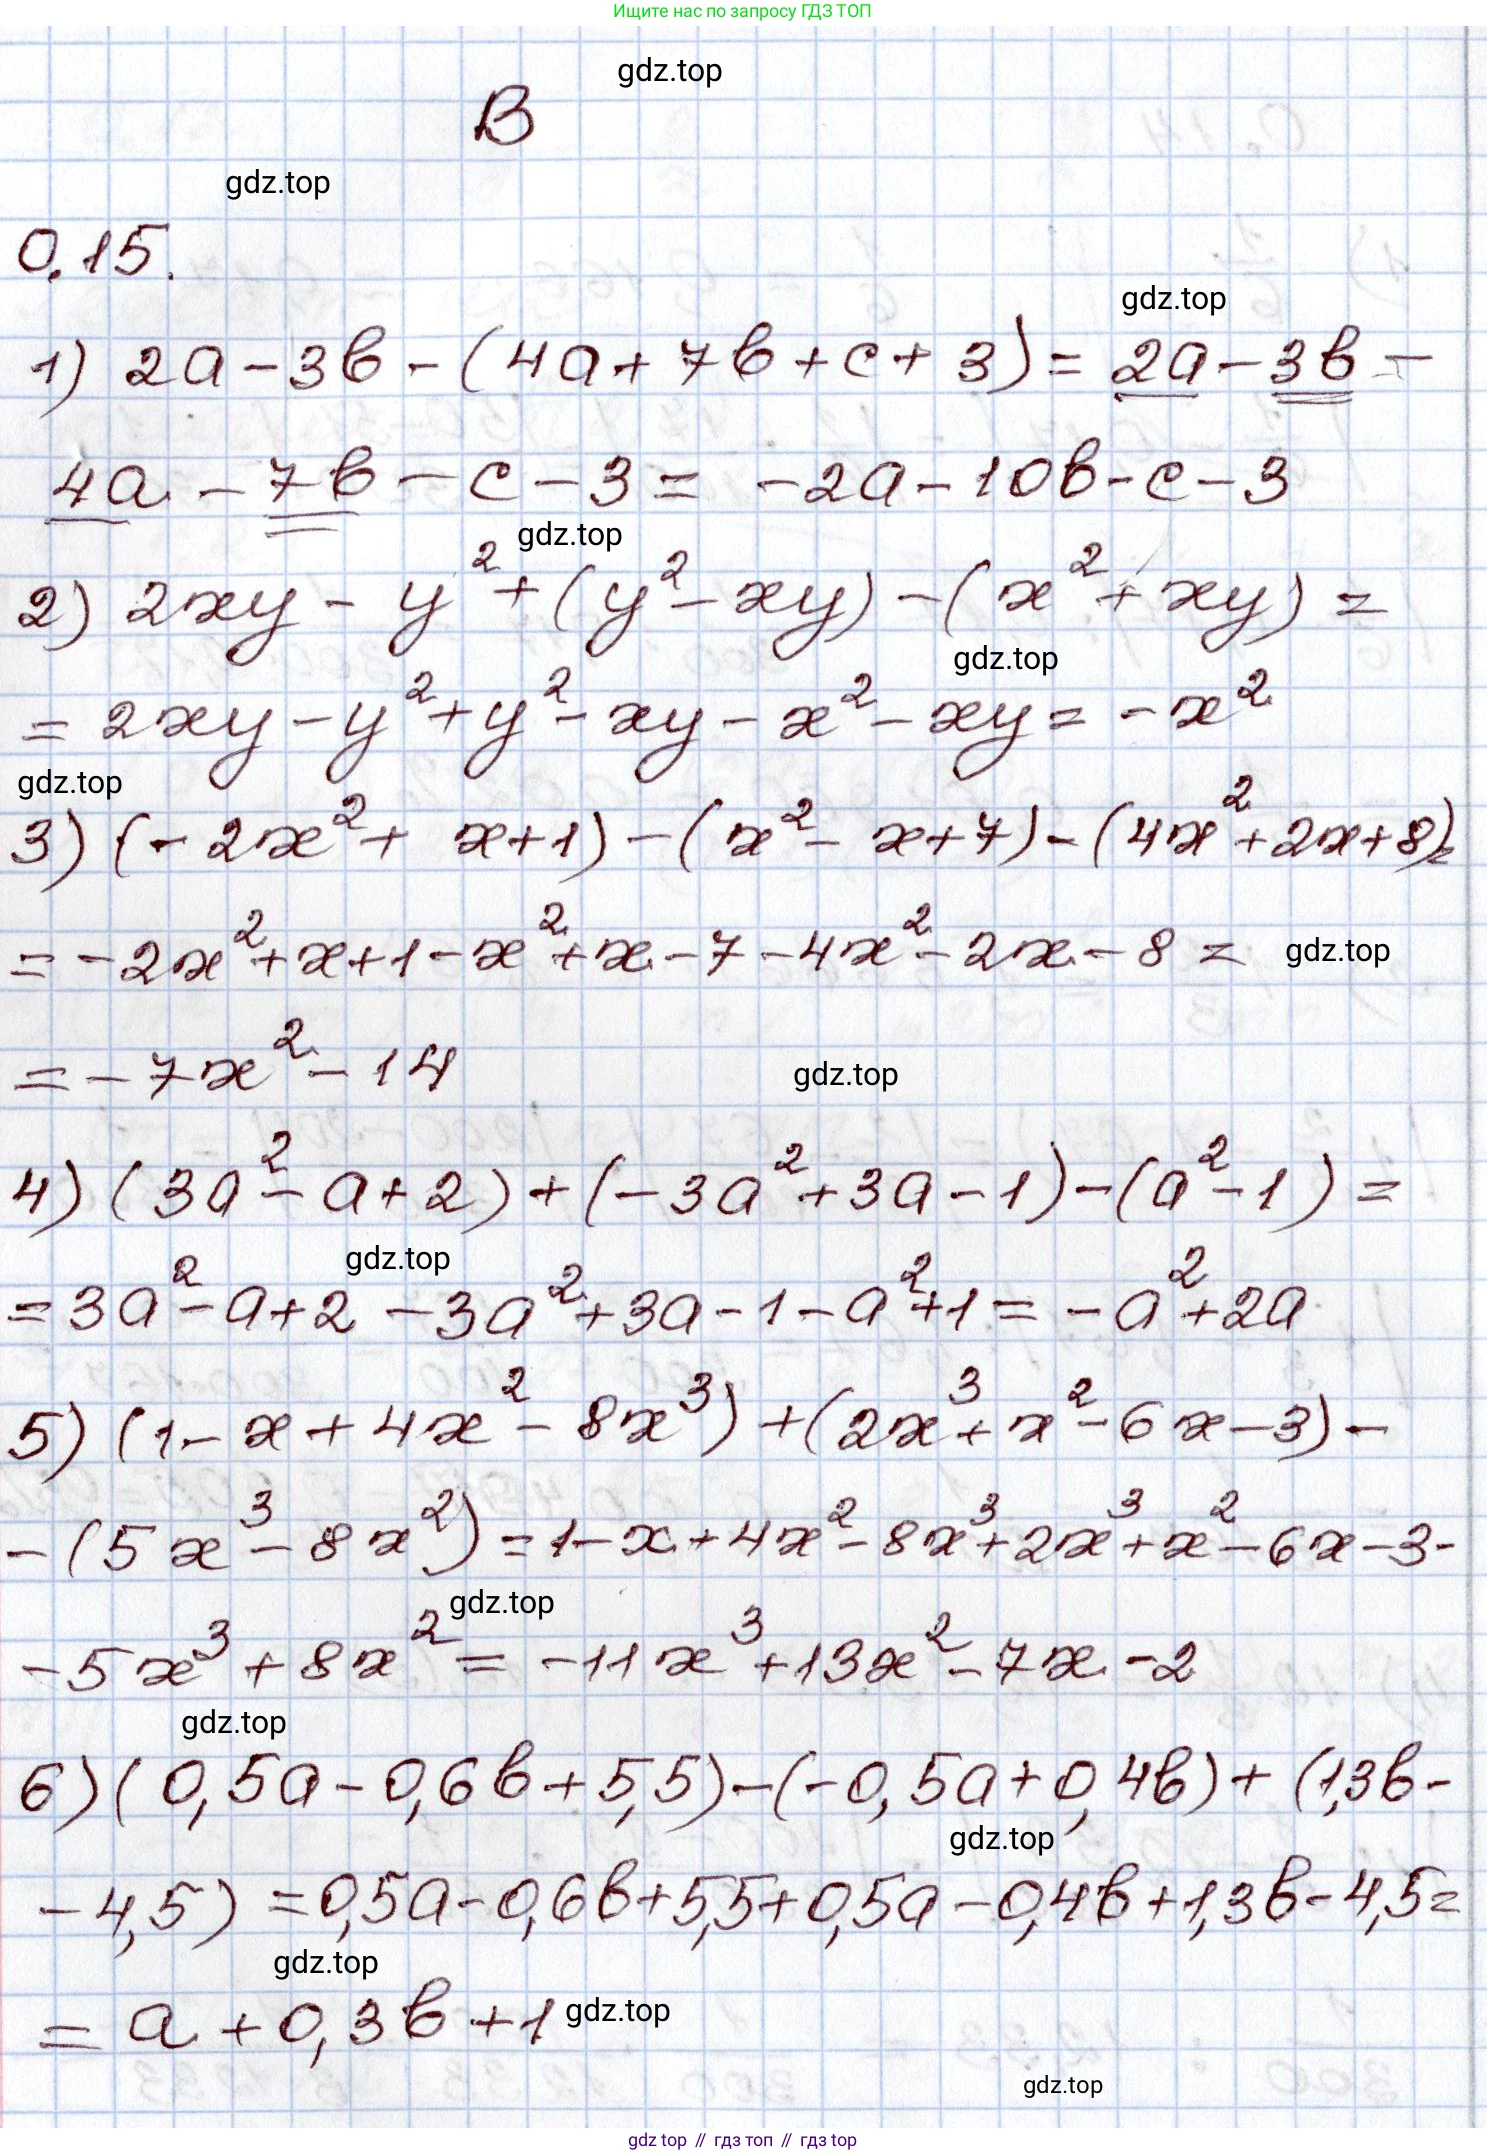 Ищите нас по запросу ГДЗ ТОП
gdz.top
В
gdz.top
0.15.
gdz.top
1) 2a - 3b - (4a + 7b + c + 3) = 2a - 3b -
4a - 7b - c - 3 = -2a - 10b - c - 3
gdz.top
2) 2xy - y² + (y² - xy) - (x² + xy) =
gdz.top
= 2xy - y² + y² - xy - x² - xy = -x²
gdz.top
3) (-2x² + x + 1) - (x² - x + 7) - (4x² + 2x + 8) =
= -2x² + x + 1 - x² + x - 7 - 4x² - 2x - 8 =
gdz.top
= -7x² - 14
gdz.top
4) (3a² - a + 2) + (-3a² + 3a - 1) - (a² - 1) =
gdz.top
= 3a² - a + 2 - 3a² + 3a - 1 - a² + 1 = -a² + 2a
5) (1 - x + 4x² - 8x³) + (2x³ + x² - 6x - 3) -
- (5x³ - 8x²) = 1 - x + 4x² - 8x³ + 2x³ + x² - 6x - 3 -
gdz.top
- 5x³ + 8x² = -11x³ + 13x² - 7x - 2
gdz.top
6) (0,5a - 0,6b + 5,5) - (-0,5a + 0,4b) + (1,3b -
gdz.top
- 4,5) = 0,5a - 0,6b + 5,5 + 0,5a - 0,4b + 1,3b - 4,5 =
gdz.top
= a + 0,3b + 1
gdz.top
gdz.top
gdz top // гдз топ // gdz.top